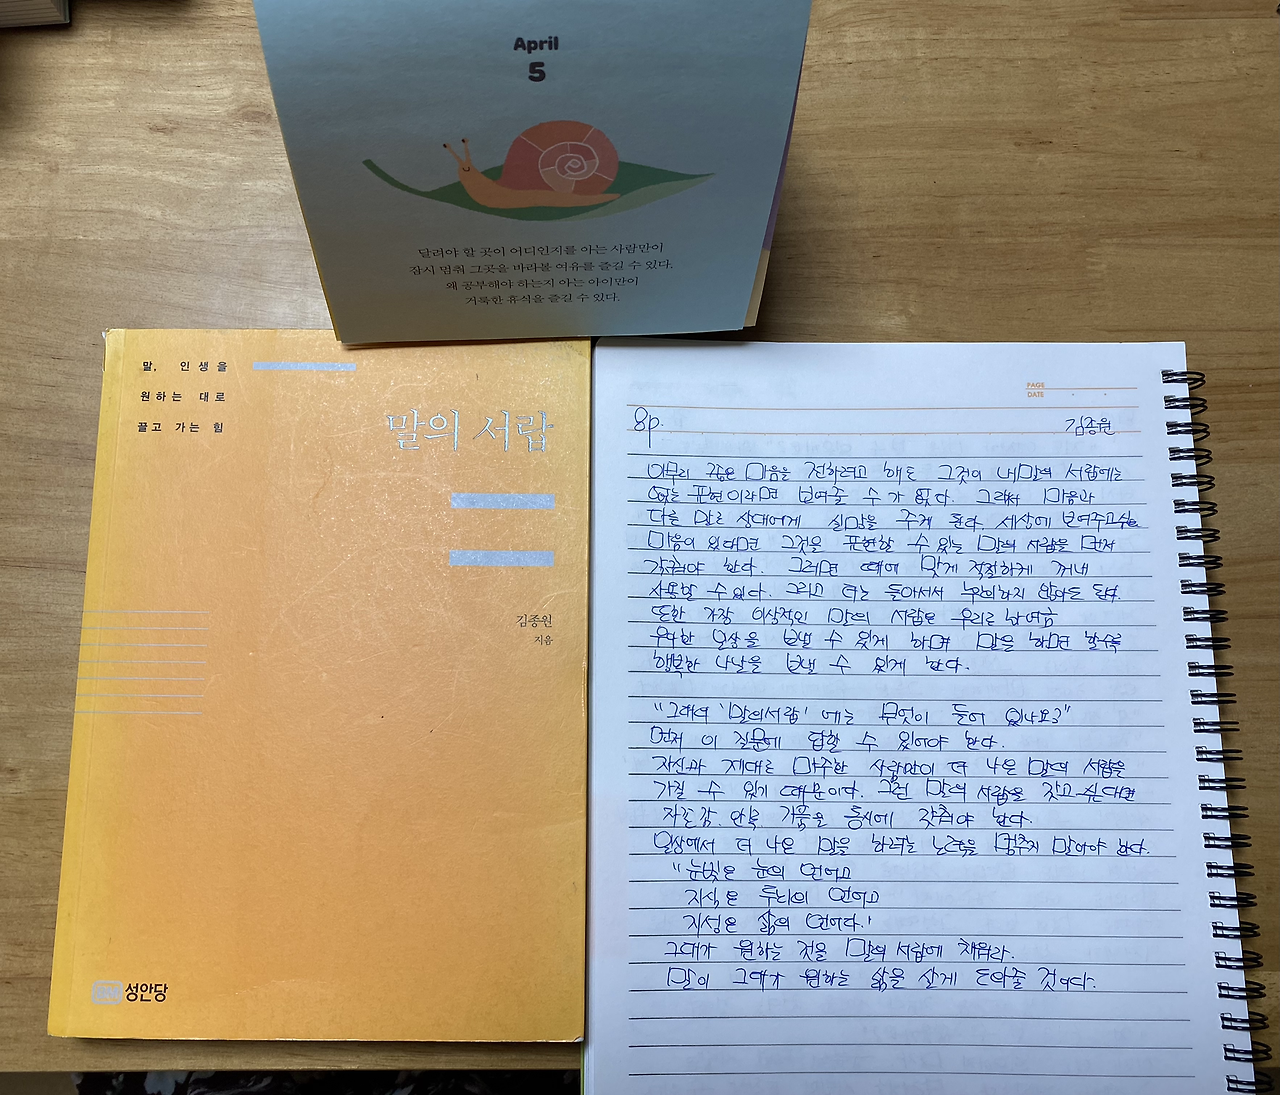 April
5
달려야 할 곳이 어디인지를 아는 사람만이
잠시 멈춰 그곳을 바라볼 여유를 즐길 수 있다.
왜 공부해야 하는지 아는 아이만이
거룩한 휴식을 즐길 수 있다.
말, 인생을
원하는 대로
끌고 가는 힘
말의 서랍
김종원
지음
성안당
PAGE
DATE
8p.
김종원
아무리 깊은 마음을 전하려고 해도 그것이 내 말의 서랍에는
없는 표현이라면 보여줄 수가 없다. 그래서 마음과
다른 말로 상대에게 실망을 주게 된다. 세상에 보여주고 싶은
마음이 있다면 그것을 표현할 수 있는 말의 서랍을 먼저
갖춰야 한다. 그러면 때에 맞게 적절하게 꺼내
사용할 수 있다. 그리고 더는 돌아서서 후회하지 않아도 된다.
또한 가장 이상적인 말의 서랍은 우리로 하여금
우아한 일상을 보낼 수 있게 하며 말을 하면 할수록
행복한 나날을 보낼 수 있게 한다.
"그대의 '말의 서랍' 에는 무엇이 들어 있나요?"
먼저 이 질문에 답할 수 있어야 한다.
자신과 제대로 마주한 사람만이 더 나은 말의 서랍을
가질 수 있기 때문이다. 그런 말의 서랍을 갖고 싶다면
자존감, 안목, 기품을 동시에 갖춰야 한다.
일상에서 더 나은 말을 하려는 노력을 멈추지 말아야 한다.
"눈빛은 눈의 언어고
지식은 두뇌의 언어고
지성은 삶의 언어다."
그대가 원하는 것을 말의 서랍에 채워라.
말이 그대가 원하는 삶을 살게 도와줄 것이다.